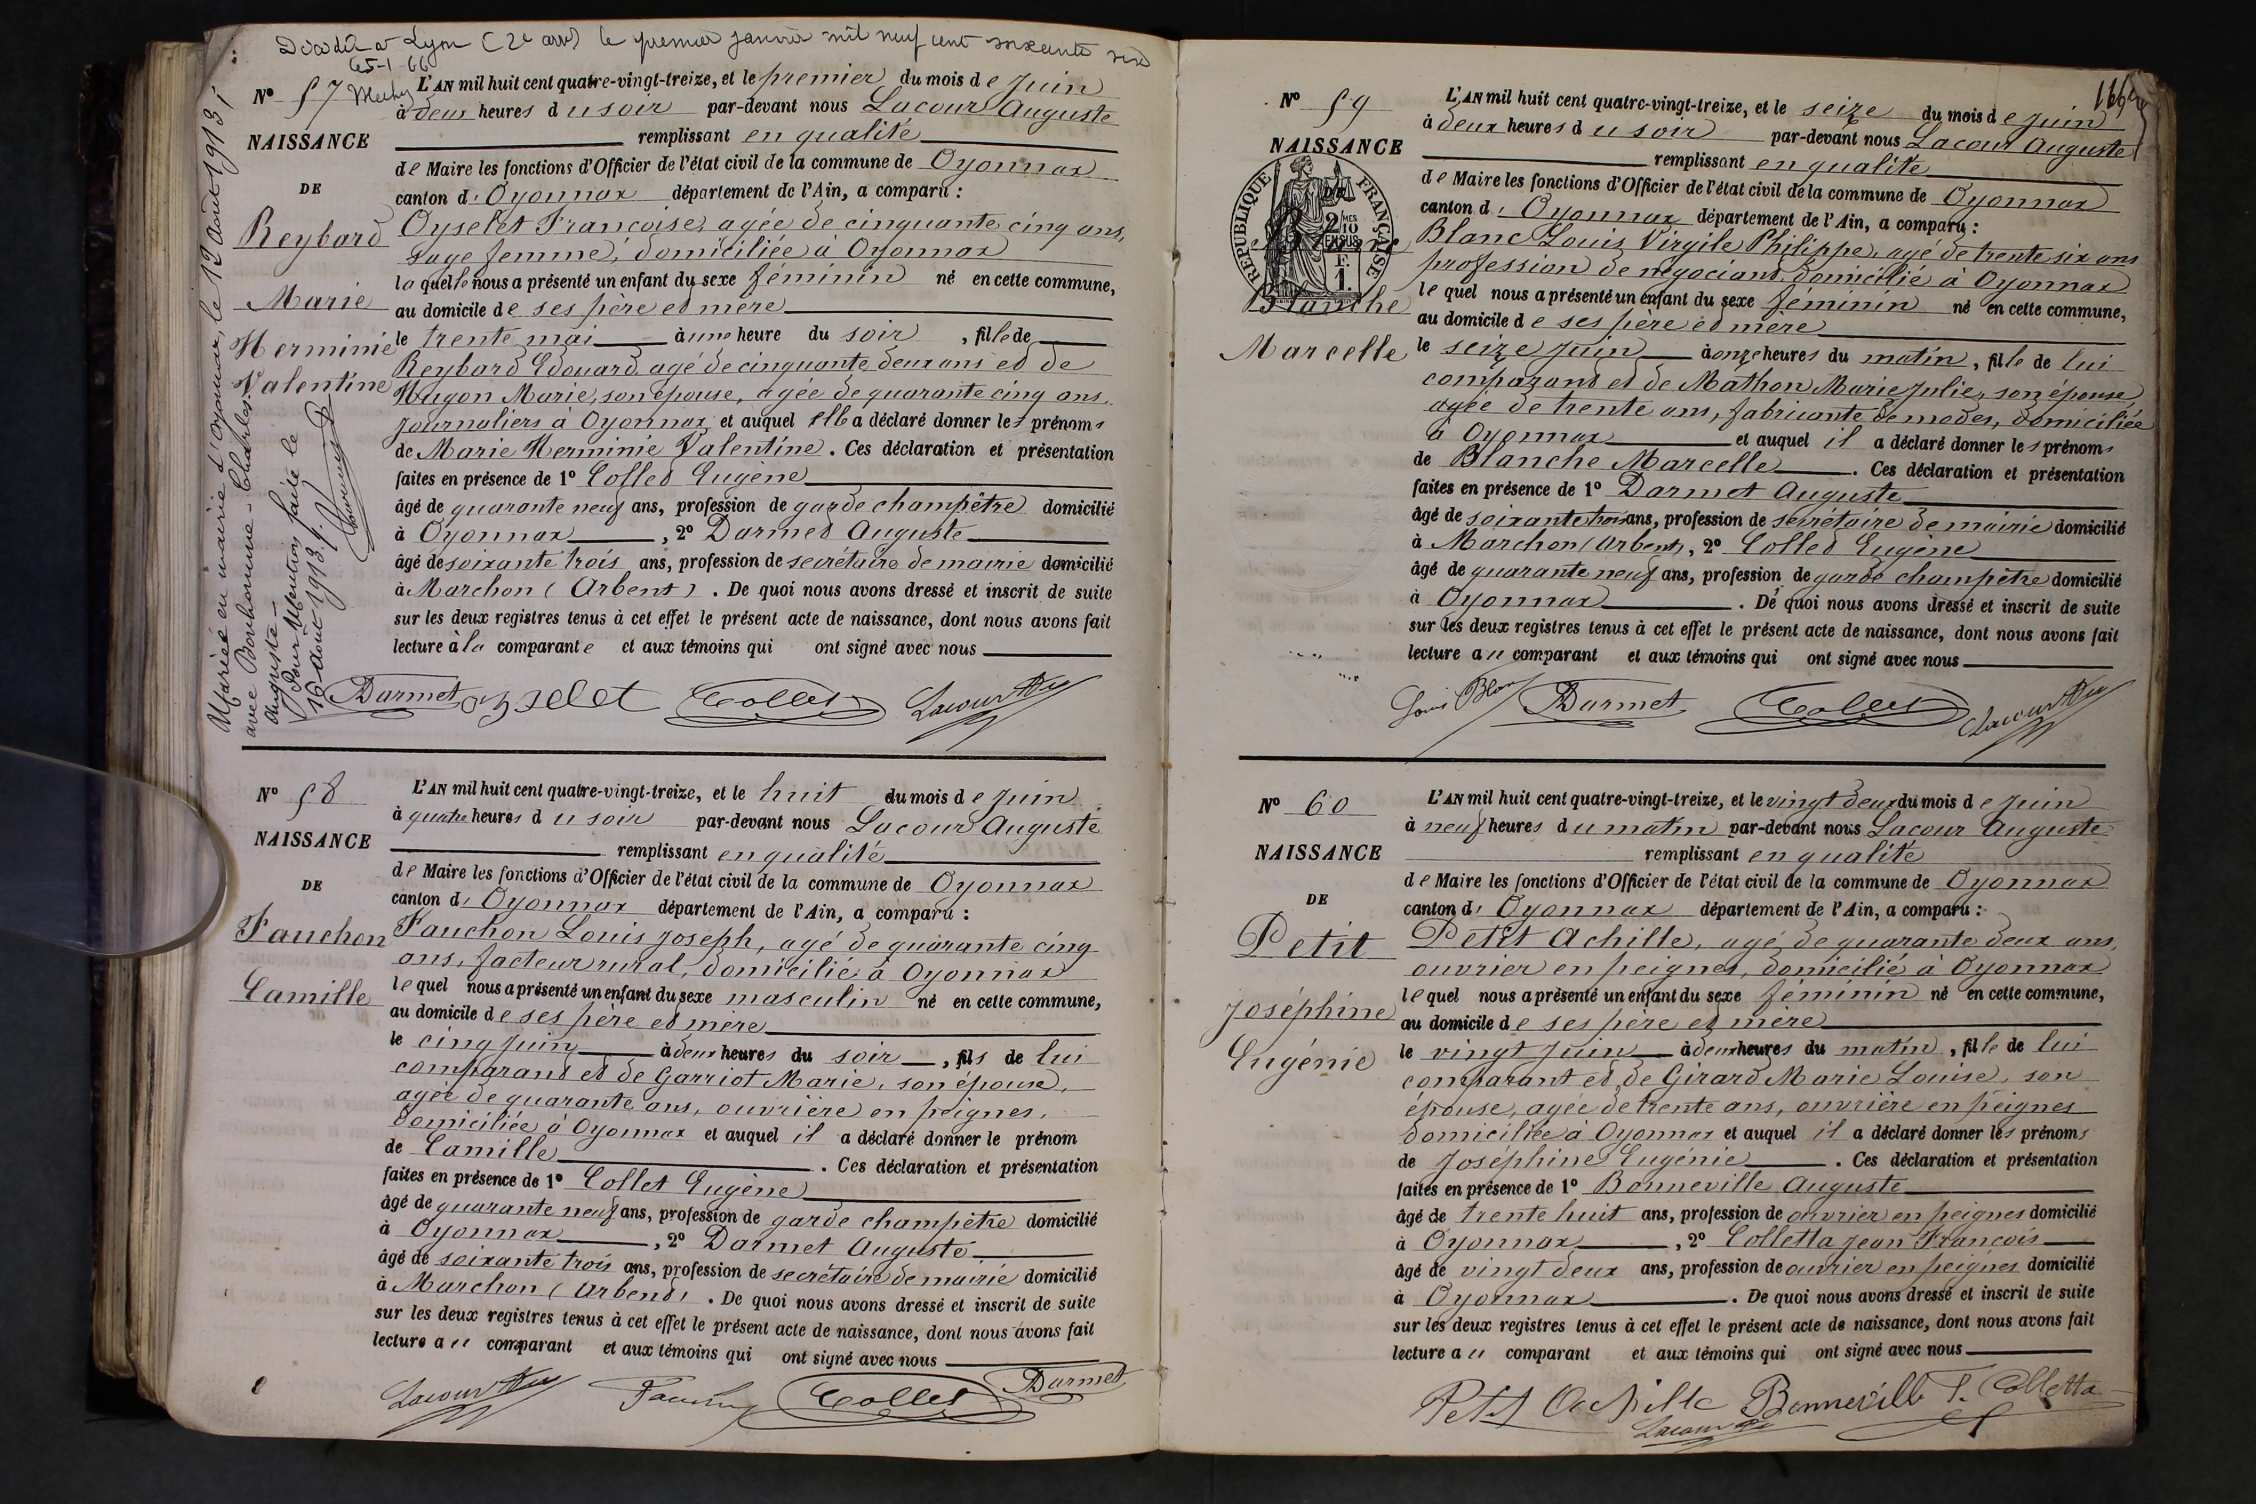 Décédée à Lyon (2e arrt) le premier janvier mil neuf cent soixante six
N° 57
NAISSANCE
DE
Reybard
Marie
Herminie
Valentine
Mariée en mairie d'Oyonnax, le 12 août 1913
avec Bonhomme Charles
Auguste
Pour Mention faite le
16 août 1913
L'AN mil huit cent quatre-vingt-treize, et le premier du mois de Juin
à deux heures du soir par-devant nous Lacour Auguste
remplissant en qualité
de Maire les fonctions d'Officier de l'état civil de la commune de Oyonnax
canton d' Oyonnax département de l'Ain, a comparu :
Oyselet Françoise, agée de cinquante cinq ans,
sage femme, domiciliée à Oyonnax
laquelle nous a présenté un enfant du sexe féminin né en cette commune,
au domicile de ses père et mère
le trente mai à une heure du soir, fille de
Reybard Edouard agé de cinquante deux ans et de
Hugon Marie, son épouse, agée de quarante cinq ans,
journaliers à Oyonnax et auquel elle a déclaré donner les prénoms
de Marie Herminie Valentine. Ces déclaration et présentation
faites en présence de 1° Collet Eugène
âgé de quarante neuf ans, profession de garde champêtre domicilié
à Oyonnax, 2° Darmet Auguste
âgé de soixante trois ans, profession de secrétaire de mairie domicilié
à Marchon (Arbent). De quoi nous avons dressé et inscrit de suite
sur les deux registres tenus à cet effet le présent acte de naissance, dont nous avons fait
lecture à la comparante et aux témoins qui ont signé avec nous
Darmet Oyselet Collet Lacour
N° 58
NAISSANCE
DE
Fauchon
Camille
L'AN mil huit cent quatre-vingt-treize, et le huit du mois de Juin
à quatre heures du soir par-devant nous Lacour Auguste
remplissant en qualité
de Maire les fonctions d'Officier de l'état civil de la commune de Oyonnax
canton d' Oyonnax département de l'Ain, a comparu :
Fauchon Louis Joseph, agé de quarante cinq
ans, facteur rural, domicilié à Oyonnax
lequel nous a présenté un enfant du sexe masculin né en cette commune,
au domicile de ses père et mère
le cinq juin à deux heures du soir, fils de lui
comparant et de Garriot Marie, son épouse,
agée de quarante ans, ouvrière en peignes,
domiciliée à Oyonnax et auquel il a déclaré donner le prénom
de Camille. Ces déclaration et présentation
faites en présence de 1° Collet Eugène
âgé de quarante neuf ans, profession de garde champêtre domicilié
à Oyonnax, 2° Darmet Auguste
âgé de soixante trois ans, profession de secrétaire de mairie domicilié
à Marchon (Arbent). De quoi nous avons dressé et inscrit de suite
sur les deux registres tenus à cet effet le présent acte de naissance, dont nous avons fait
lecture au comparant et aux témoins qui ont signé avec nous
Lacour Fauchon Collet Darmet
N° 59
NAISSANCE
RÉPUBLIQUE FRANÇAISE
Blanche
Marcelle
L'AN mil huit cent quatre-vingt-treize, et le seize du mois de Juin
à deux heures du soir par-devant nous Lacour Auguste
remplissant en qualité
de Maire les fonctions d'Officier de l'état civil de la commune de Oyonnax
canton d' Oyonnax département de l'Ain, a comparu :
Blanc Louis Virgile Philippe, agé de trente six ans
profession de négociant domicilié à Oyonnax
lequel nous a présenté un enfant du sexe féminin né en cette commune,
au domicile de ses père et mère
le seize juin à onze heures du matin, fille de lui
comparant et de Mathon Marie Julie, son épouse,
agée de trente ans, fabricante de modes, domiciliée
à Oyonnax et auquel il a déclaré donner les prénoms
de Blanche Marcelle. Ces déclaration et présentation
faites en présence de 1° Darmet Auguste
âgé de soixante trois ans, profession de secrétaire de mairie domicilié
à Marchon (Arbent), 2° Collet Eugène
âgé de quarante neuf ans, profession de garde champêtre domicilié
à Oyonnax. De quoi nous avons dressé et inscrit de suite
sur les deux registres tenus à cet effet le présent acte de naissance, dont nous avons fait
lecture au comparant et aux témoins qui ont signé avec nous
Louis Blanc Darmet Collet Lacour
N° 60
NAISSANCE
DE
Petit
Joséphine
Eugénie
L'AN mil huit cent quatre-vingt-treize, et le vingt deux du mois de Juin
à neuf heures du matin par-devant nous Lacour Auguste
remplissant en qualité
de Maire les fonctions d'Officier de l'état civil de la commune de Oyonnax
canton d' Oyonnax département de l'Ain, a comparu :
Petit Achille, agé de quarante deux ans,
ouvrier en peignes, domicilié à Oyonnax
lequel nous a présenté un enfant du sexe féminin né en cette commune,
au domicile de ses père et mère
le vingt juin à deux heures du matin, fille de lui
comparant et de Girard Marie Louise, son
épouse, agée de trente ans, ouvrière en peignes
domiciliée à Oyonnax et auquel il a déclaré donner les prénoms
de Joséphine Eugénie. Ces déclaration et présentation
faites en présence de 1° Bonneville Auguste
âgé de trente huit ans, profession de ouvrier en peignes domicilié
à Oyonnax, 2° Colletta Jean François
âgé de vingt deux ans, profession de ouvrier en peignes domicilié
à Oyonnax. De quoi nous avons dressé et inscrit de suite
sur les deux registres tenus à cet effet le présent acte de naissance, dont nous avons fait
lecture au comparant et aux témoins qui ont signé avec nous
Petit Achille Bonneville F. Colletta
Lacour